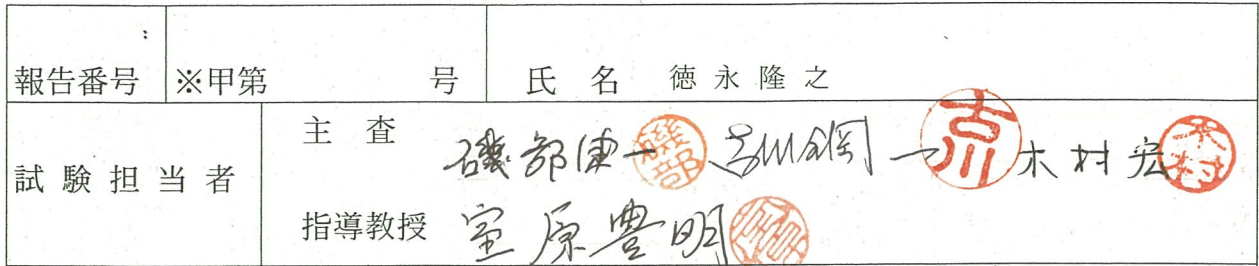 報告番号 ※甲第 号 氏名 徳永隆之
試験担当者 主査 磯部健一 磯部 古川鋼一 古川 木村宏 木村
指導教授 室原豊明